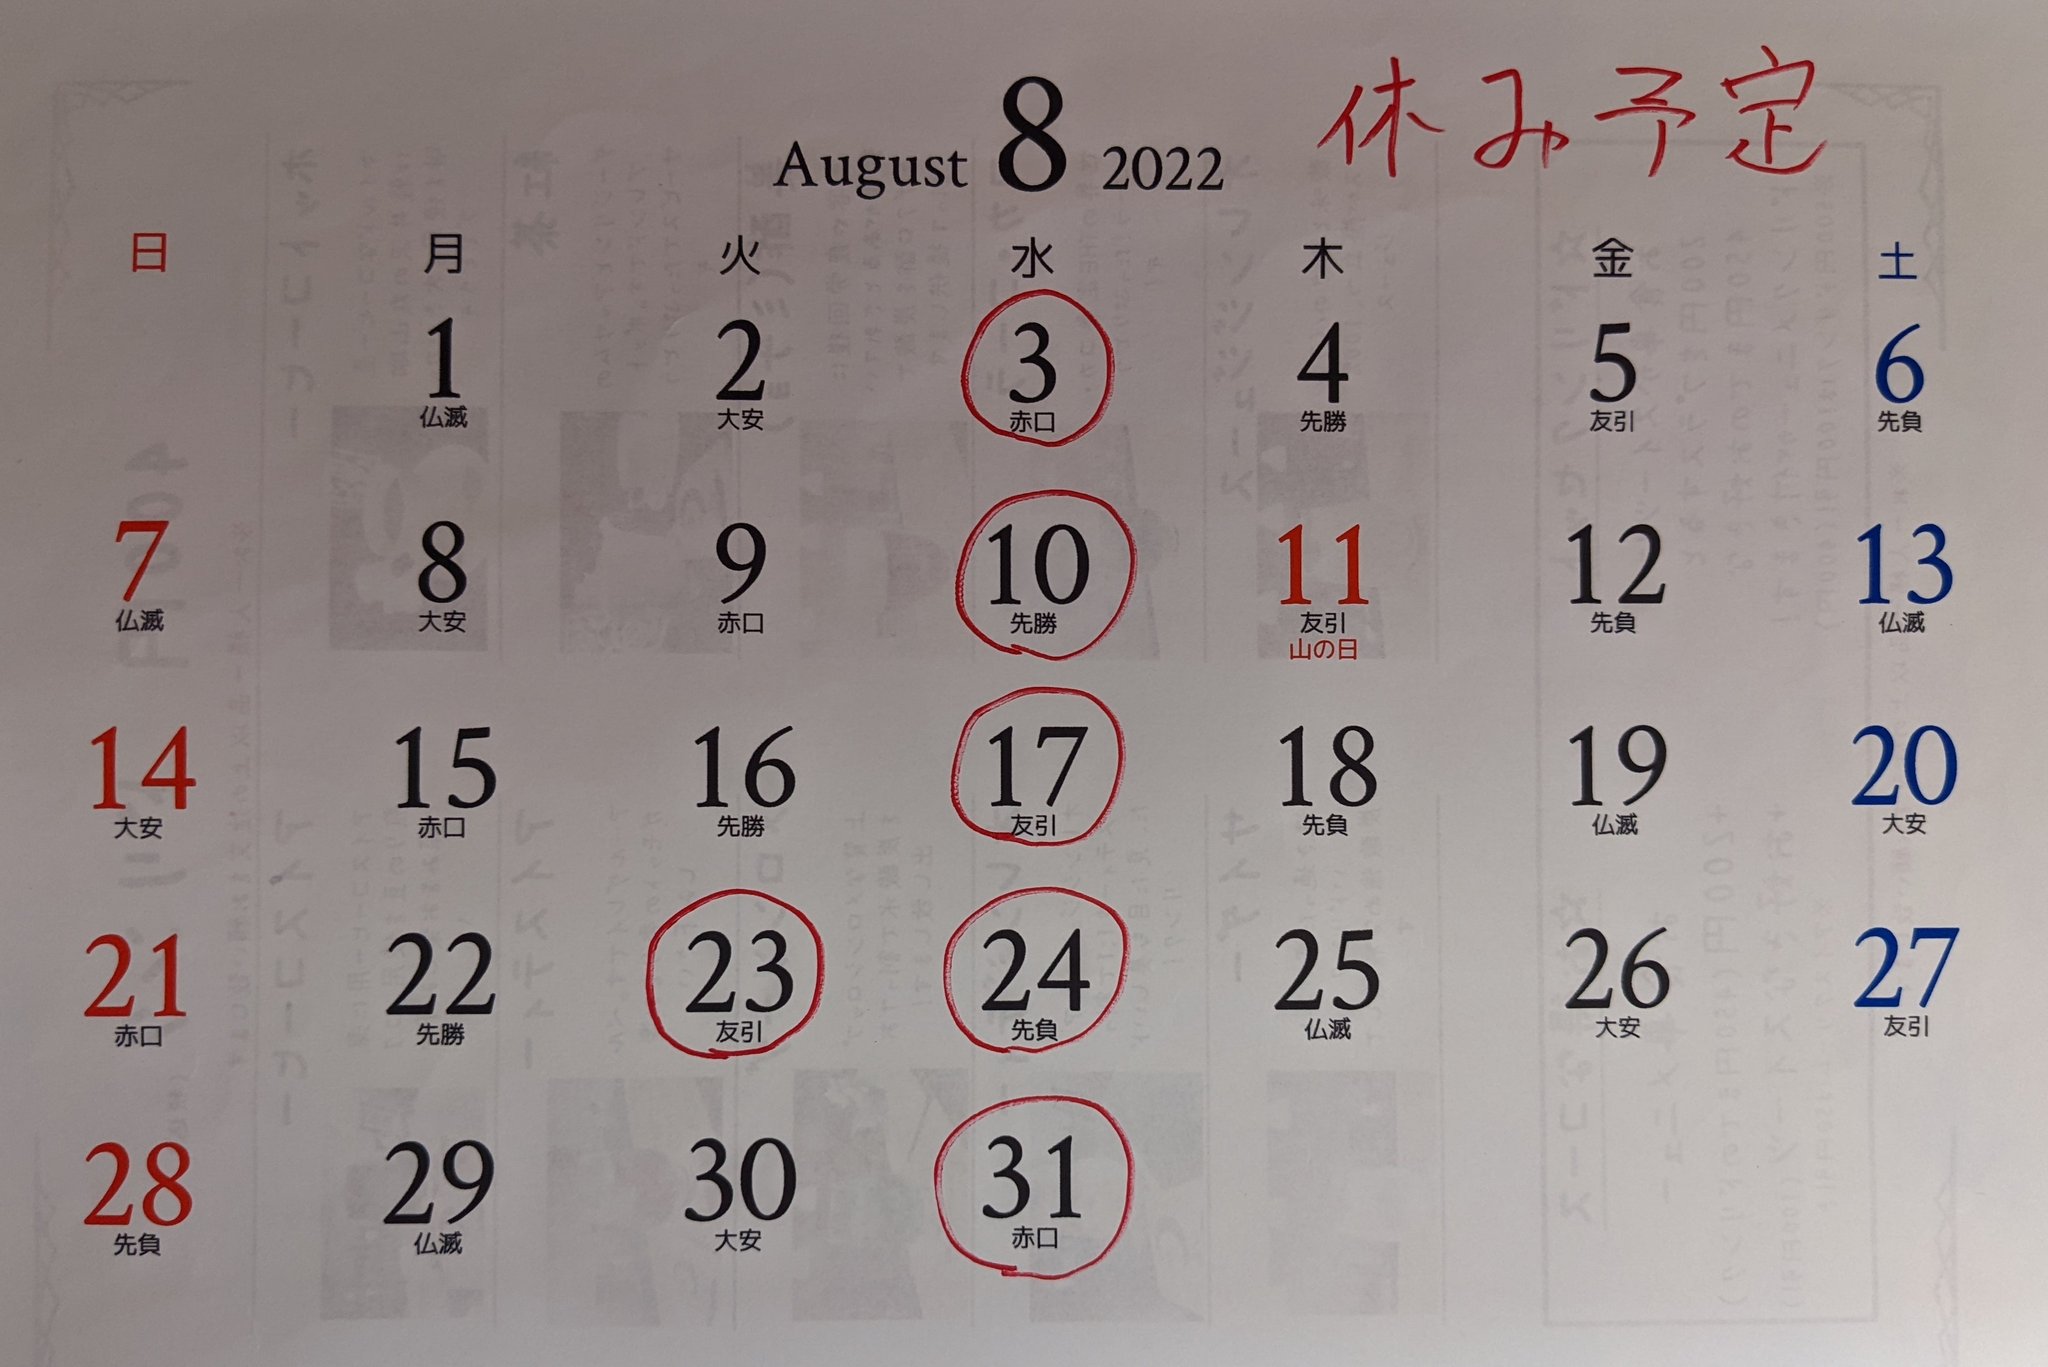 August 8 2022 休み予定
日 月 火 水 木 金 土
1 2 3 4 5 6
仏滅 大安 赤口 先勝 友引 先負
7 8 9 10 11 12 13
仏滅 大安 赤口 先勝 友引 先負 仏滅
山の日
14 15 16 17 18 19 20
大安 赤口 先勝 友引 先負 仏滅 大安
21 22 23 24 25 26 27
赤口 先勝 友引 先負 仏滅 大安 友引
28 29 30 31
先負 仏滅 大安 赤口